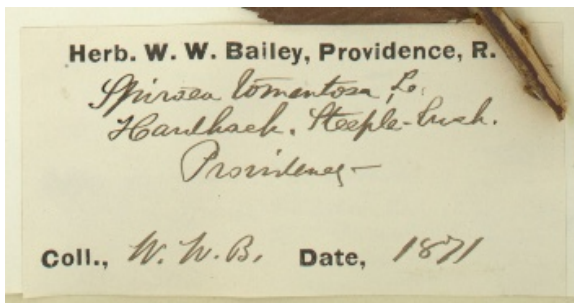 Herb. W. W. Bailey, Providence, R.
Spiraea tomentosa, L.
Hardhack. Steeple-bush.
Providence
Coll., W. W. B. Date, 1871